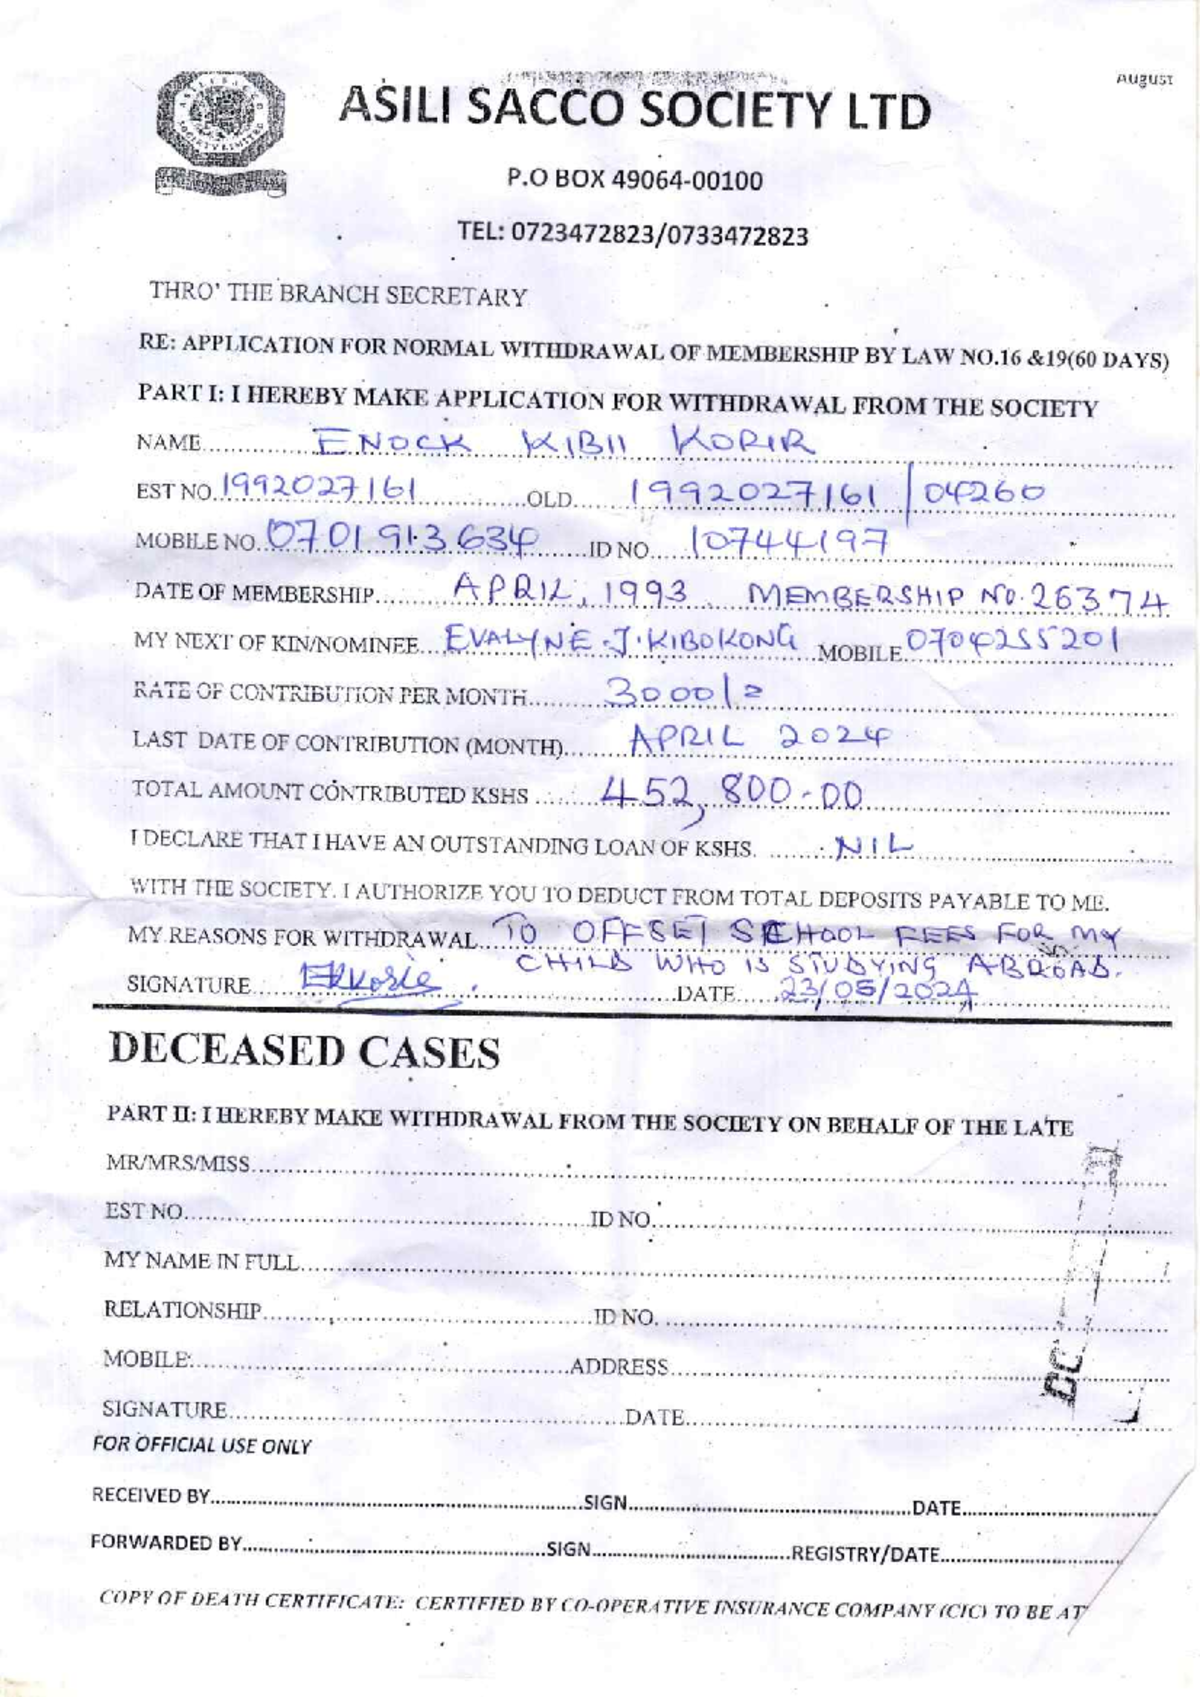 August
ASILI SACCO SOCIETY LTD
P.O BOX 49064-00100
TEL: 0723472823/0733472823
THRO' THE BRANCH SECRETARY
RE: APPLICATION FOR NORMAL WITHDRAWAL OF MEMBERSHIP BY LAW NO.16 &19(60 DAYS)
PART I: I HEREBY MAKE APPLICATION FOR WITHDRAWAL FROM THE SOCIETY
NAME ENOCK KIBII KORIR
EST NO. 1992027161 OLD 1992027161 / 04260
MOBILE NO. 0701913634 ID NO. 10744197
DATE OF MEMBERSHIP APRIL, 1993 MEMBERSHIP NO. 26374
MY NEXT OF KIN/NOMINEE EVALYNE J. KIBOKONG MOBILE 0704255201
RATE OF CONTRIBUTION PER MONTH 3000/=
LAST DATE OF CONTRIBUTION (MONTH) APRIL 2024
TOTAL AMOUNT CONTRIBUTED KSHS 452,800-00
I DECLARE THAT I HAVE AN OUTSTANDING LOAN OF KSHS. NIL
WITH THE SOCIETY. I AUTHORIZE YOU TO DEDUCT FROM TOTAL DEPOSITS PAYABLE TO ME.
MY REASONS FOR WITHDRAWAL TO OFFSET SCHOOL FEES FOR MY
CHILD WHO IS STUDYING ABROAD.
SIGNATURE DATE 23/05/2024
DECEASED CASES
PART II: I HEREBY MAKE WITHDRAWAL FROM THE SOCIETY ON BEHALF OF THE LATE
MR/MRS/MISS
EST NO ID NO.
MY NAME IN FULL
RELATIONSHIP ID NO.
MOBILE: ADDRESS
SIGNATURE DATE
FOR OFFICIAL USE ONLY
RECEIVED BY SIGN DATE
FORWARDED BY SIGN REGISTRY/DATE
COPY OF DEATH CERTIFICATE: CERTIFIED BY CO-OPERATIVE INSURANCE COMPANY (CIC) TO BE AT